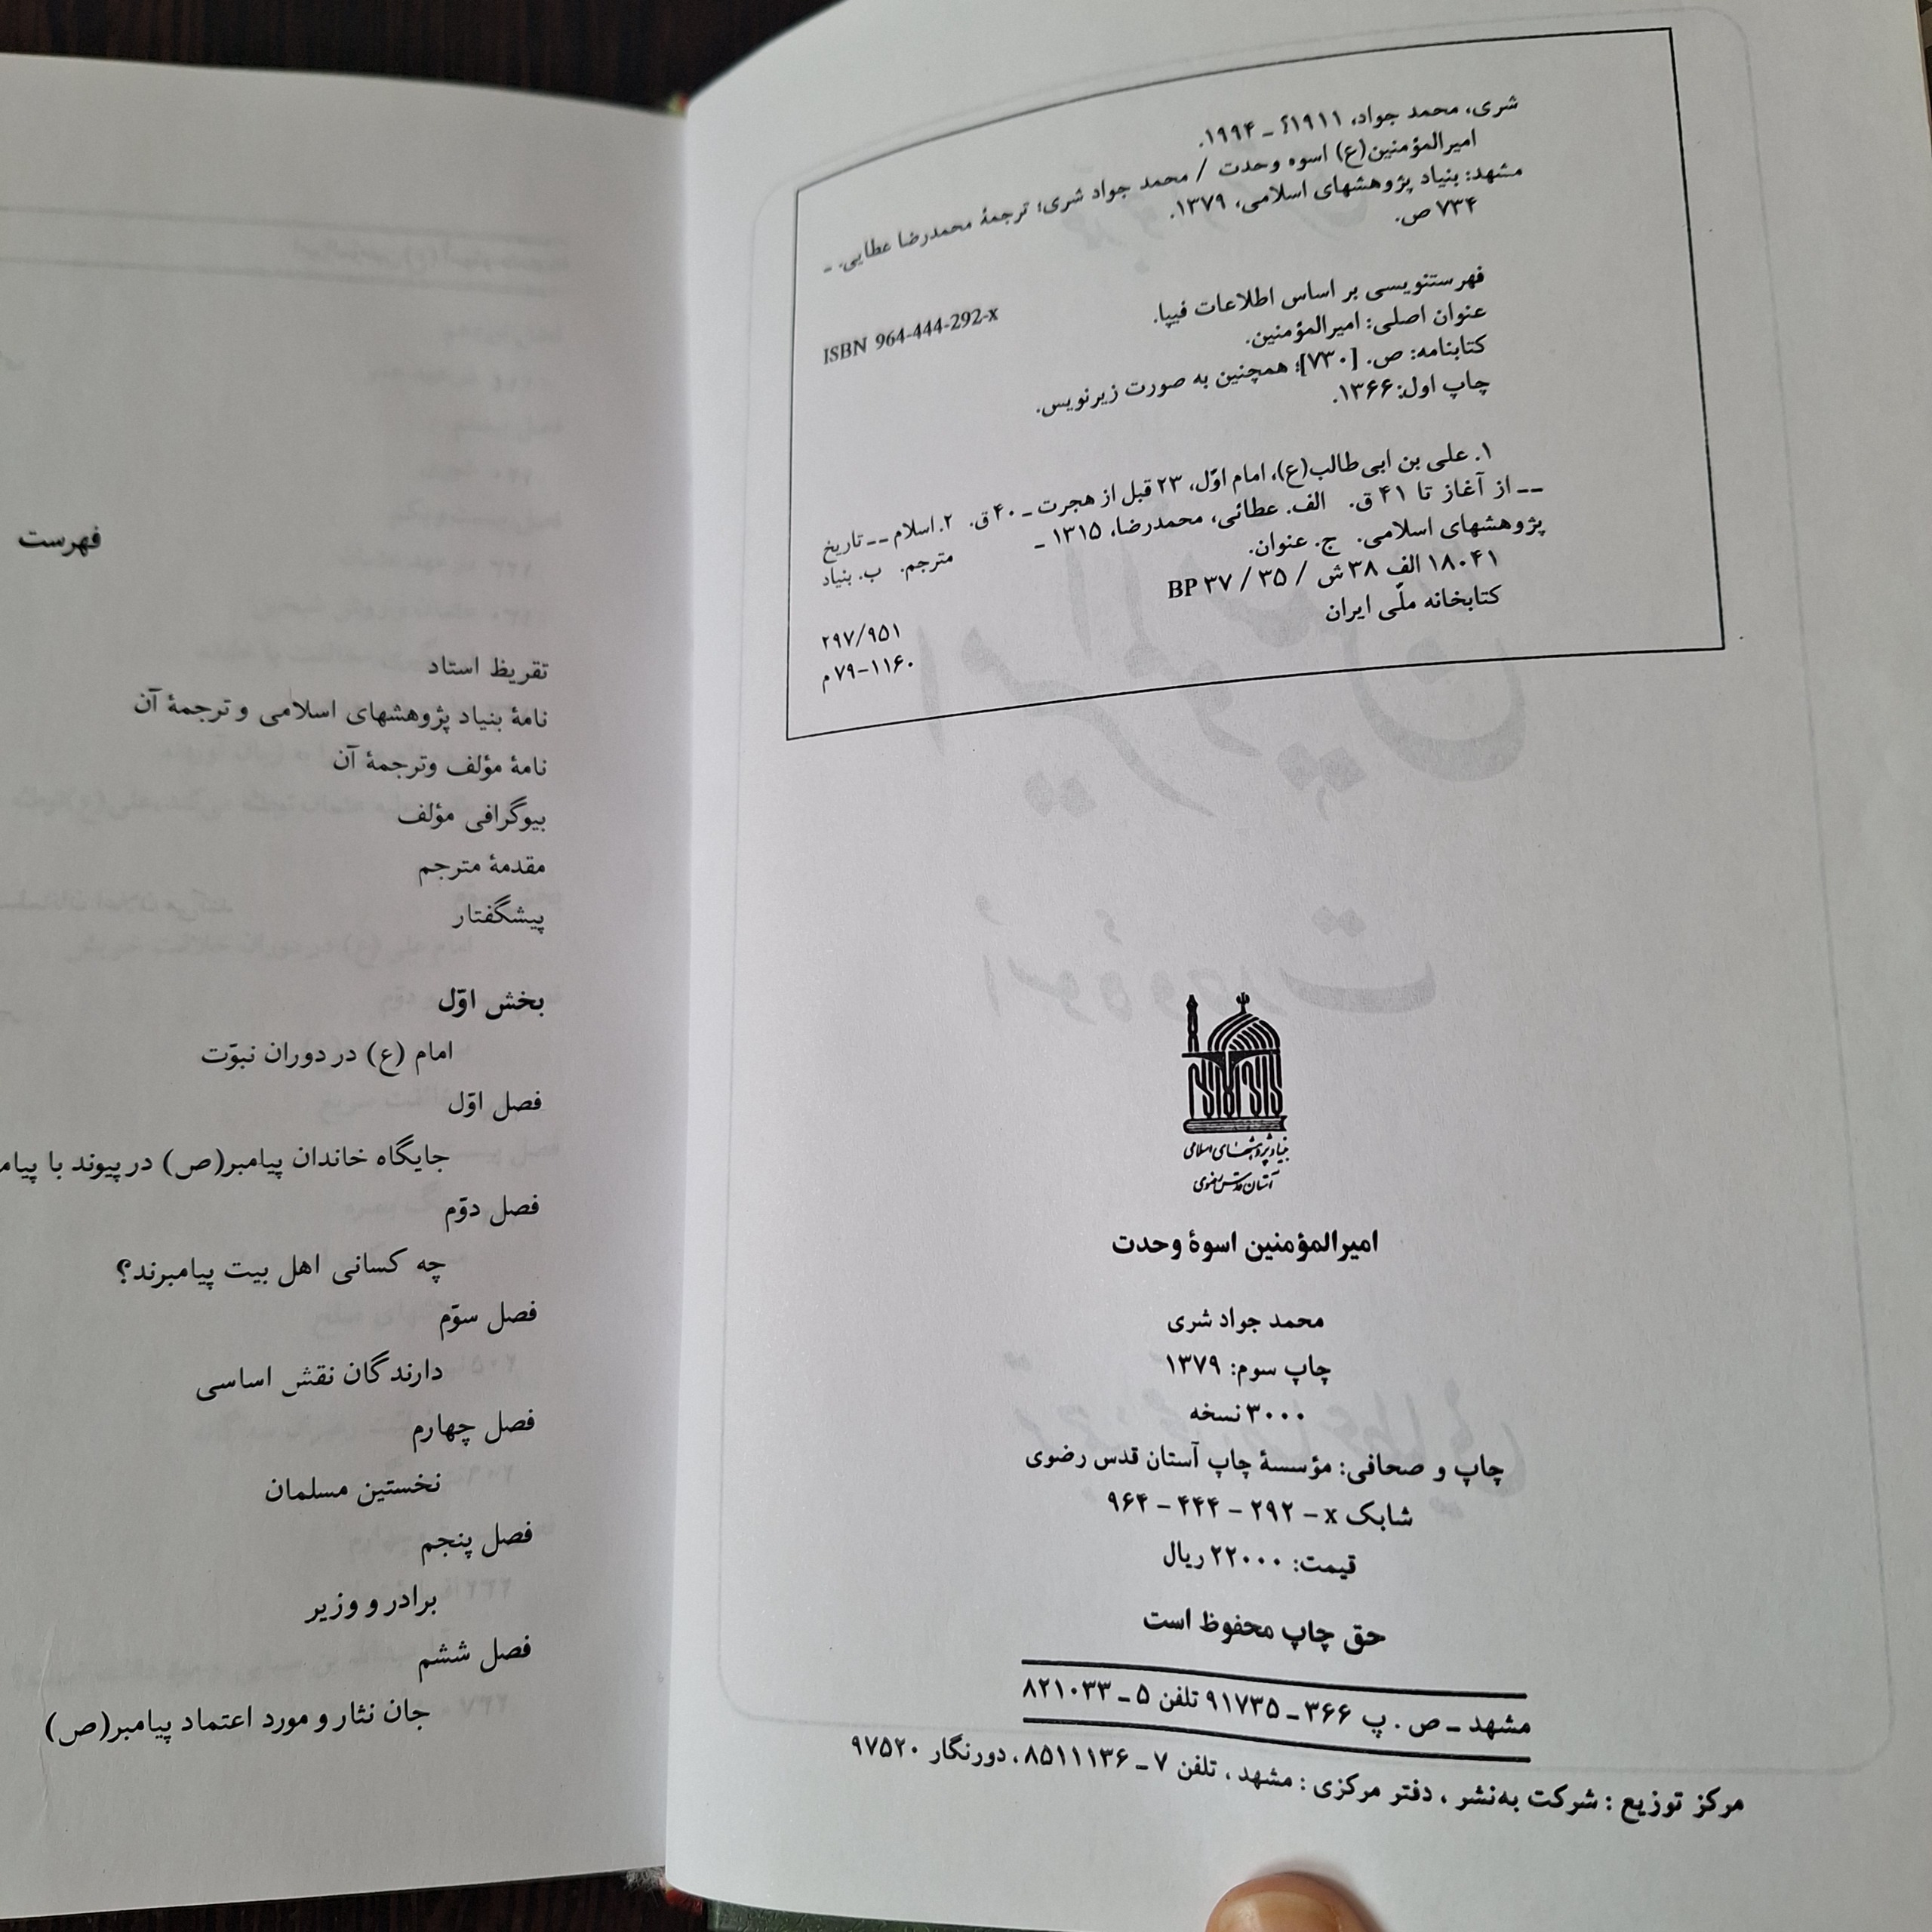 شری، محمد جواد، ۱۹۱۱؟ ـ ۱۹۹۴.
امیرالمؤمنین(ع) اسوه وحدت / محمد جواد شری؛ ترجمهٔ محمدرضا عطایی. ـ
مشهد: بنیاد پژوهشهای اسلامی، ۱۳۷۹.
۷۳۴ ص.
ISBN 964-444-292-x
فهرستنویسی بر اساس اطلاعات فیپا.
عنوان اصلی: امیرالمؤمنین.
کتابنامه: ص. [۷۳۰]؛ همچنین به صورت زیرنویس.
چاپ اول: ۱۳۶۶.
۱. علی بن ابی طالب(ع)، امام اوّل، ۲۳ قبل از هجرت ـ ۴۰ ق. ۲. اسلام ــ تاریخ
ــ از آغاز تا ۴۱ ق. الف. عطائی، محمدرضا، ۱۳۱۵ ـ مترجم. ب. بنیاد
پژوهشهای اسلامی. ج. عنوان.
۱۸۰۴۱ الف ۳۸ ش / ۳۵ / ۳۷ BP
۲۹۷/۹۵۱
کتابخانه ملّی ایران
۱۱۶۰-۷۹ م
بنیاد پژوهشهای اسلامی
آستان قدس رضوی
امیرالمؤمنین اسوهٔ وحدت
محمد جواد شری
چاپ سوم: ۱۳۷۹
۳۰۰۰ نسخه
چاپ و صحافی: مؤسسهٔ چاپ آستان قدس رضوی
شابک x – ۲۹۲ – ۴۴۴ – ۹۶۴
قیمت: ۲۲۰۰۰ ریال
حق چاپ محفوظ است
مشهد ـ ص . پ ۳۶۶ ـ ۹۱۷۳۵ تلفن ۵ ـ ۸۲۱۰۳۳
مرکز توزیع : شرکت به‌نشر ، دفتر مرکزی : مشهد ، تلفن ۷ ـ ۸۵۱۱۱۳۶ ، دورنگار ۹۷۵۲۰
فهرست
تقریظ استاد
نامهٔ بنیاد پژوهشهای اسلامی و ترجمهٔ آن
نامهٔ مؤلف وترجمهٔ آن
بیوگرافی مؤلف
مقدمهٔ مترجم
پیشگفتار
بخش اوّل
امام (ع) در دوران نبوّت
فصل اوّل
جایگاه خاندان پیامبر(ص) در پیوند با
فصل دوّم
چه کسانی اهل بیت پیامبرند؟
فصل سوّم
دارندگان نقش اساسی
فصل چهارم
نخستین مسلمان
فصل پنجم
برادر و وزیر
فصل ششم
جان نثار و مورد اعتماد پیامبر(ص)